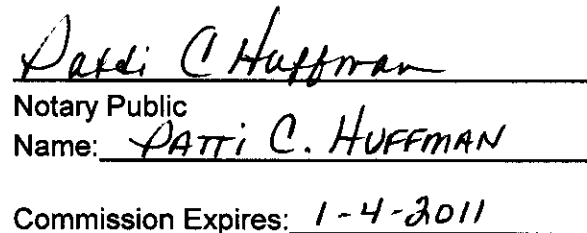 Patti C Huffman
Notary Public
Name: PATTi C. HUFFMAN
Commission Expires: 1-4-2011